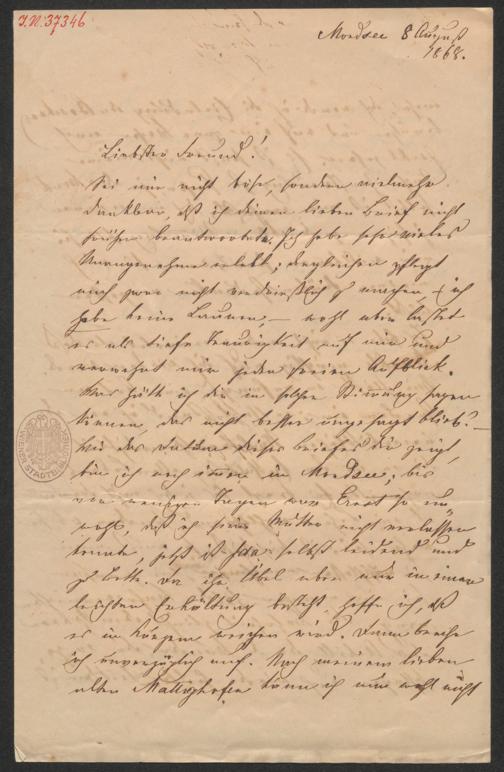 J.N. 37346
Mondsee 8 August
1868.
Liebster Freund!
Sei mir nicht böse, sondern vielmehr
dankbar, daß ich deinen lieben Brief nicht
früher beantwortete. Ich habe sehr vieles
Unangenehme erlebt; dergleichen pflegt
mich zwar nicht verdrießlich zu machen, – ich
habe keine Launen, – wohl aber lastet
es als tiefe Traurigkeit auf mir und
verwehrt mir jeden freien Aufblick.
Was hätte ich dir in solcher Stimmung sagen
können, das nicht besser ungesagt blieb? –
Wie das Datum dieses Briefes dir zeigt,
bin ich noch immer in Mondsee; bis
vor wenigen Tagen war Ernst so un-
wohl, daß ich seine Mutter nicht verlassen
konnte, jetzt ist sie selbst leidend und
zu Bette. Da ihr Übel aber nur in einer
leichten Erkältung besteht, hoffe ich, daß
es in Kürzem weichen wird. Dann breche
ich unverzüglich auf. Nach meinem lieben
alten Mattighofen kann ich nun wohl nicht
WIENER STADTBIBLIOTHEK